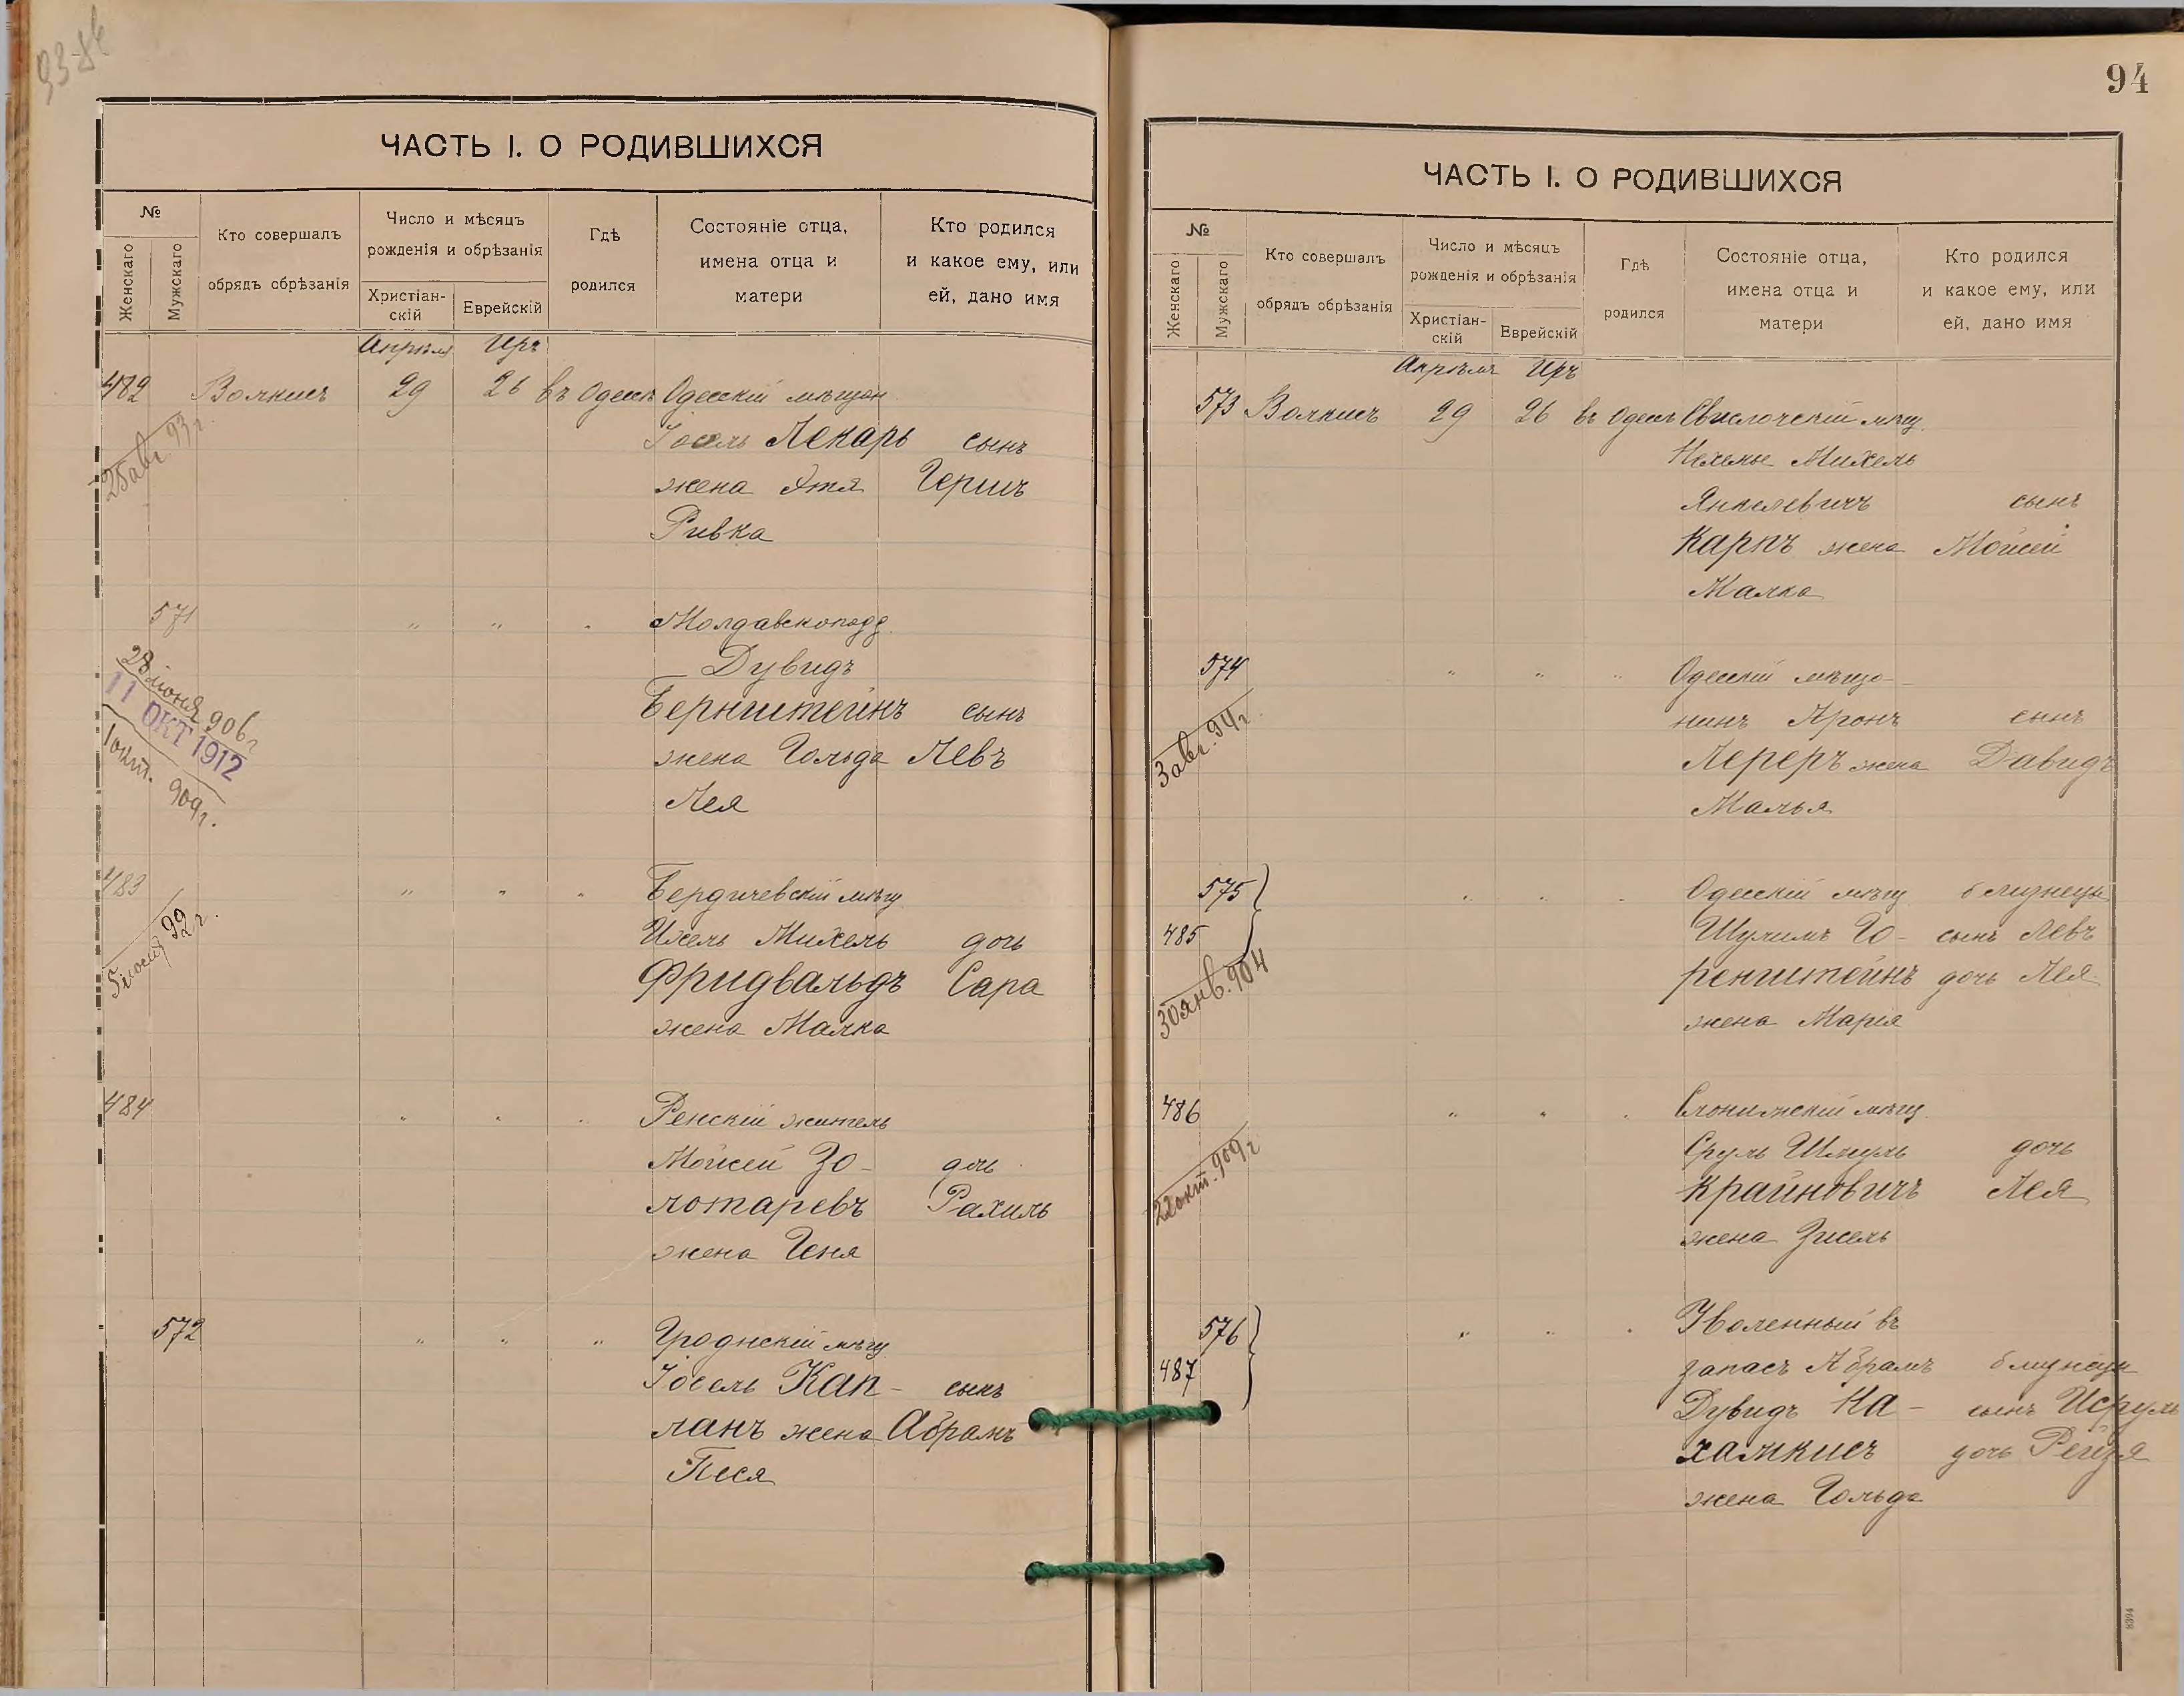 93-
ЧАСТЬ I. О РОДИВШИХСЯ
№
Женскаго
Мужскаго
Кто совершалъ
обрядъ обрѣзанія
Число и мѣсяцъ
рожденія и обрѣзанія
Христіан-
скій
Еврейскій
Гдѣ
родился
Состояніе отца,
имена отца и
матери
Кто родился
и какое ему, или
ей, дано имя
Апрѣля Иръ
482 Волкисъ 29 26 въ Одессѣ Одесскій мѣщан
Іосель Лекарь сынъ
25 авг 93 г.
жена Этя Гершъ
Ривка
571 " " " Молдавскоподд
Дувидъ
28 іюня 906 г
11 ОКТ 1912
1 окт. 909 г.
Бернштейнъ сынъ
жена Гольда Левъ
Лея
483 " " " Бердичевскій мѣщ
5 92 г.
Ихель Михель дочь
Фридвальдъ Сара
жена Малка
484 " " " Ренскій житель
Мойсей Зо- дочь
лотаревъ Рахиль
жена Геня
572 " " " Гродненскій мѣщ
Іосель Кап- сынъ
ланъ жена Абрамъ
Песя
94
ЧАСТЬ I. О РОДИВШИХСЯ
№
Женскаго
Мужскаго
Кто совершалъ
обрядъ обрѣзанія
Число и мѣсяцъ
рожденія и обрѣзанія
Христіан-
скій
Еврейскій
Гдѣ
родился
Состояніе отца,
имена отца и
матери
Кто родился
и какое ему, или
ей, дано имя
Апрѣля Иръ
573 Волкисъ 29 26 въ Одессѣ Свислочскій мѣщ.
Михель
Янкелевичъ сынъ
Карпъ жена Мойсей
Малка
574 " " " Одесскій мѣща-
нинъ Аронъ сынъ
3 авг. 94 г.
Лереръ жена Давидъ
Малья
575 " " " Одесскій мѣщ близнецы
485 Шулимъ Го- сынъ Левъ
30 янв. 904
ренштейнъ дочь Лея
жена Марія
486 " " " Слонимскій мѣщ.
Сруль Шмуль дочь
22 окт. 909 г
Крайновичъ Лея
жена Зисель
576 " " " Уволенный въ
487 запасъ Абрамъ близнецы
Дувидъ На- сынъ Исруль
хамкисъ дочь Рейзя
жена Гольда